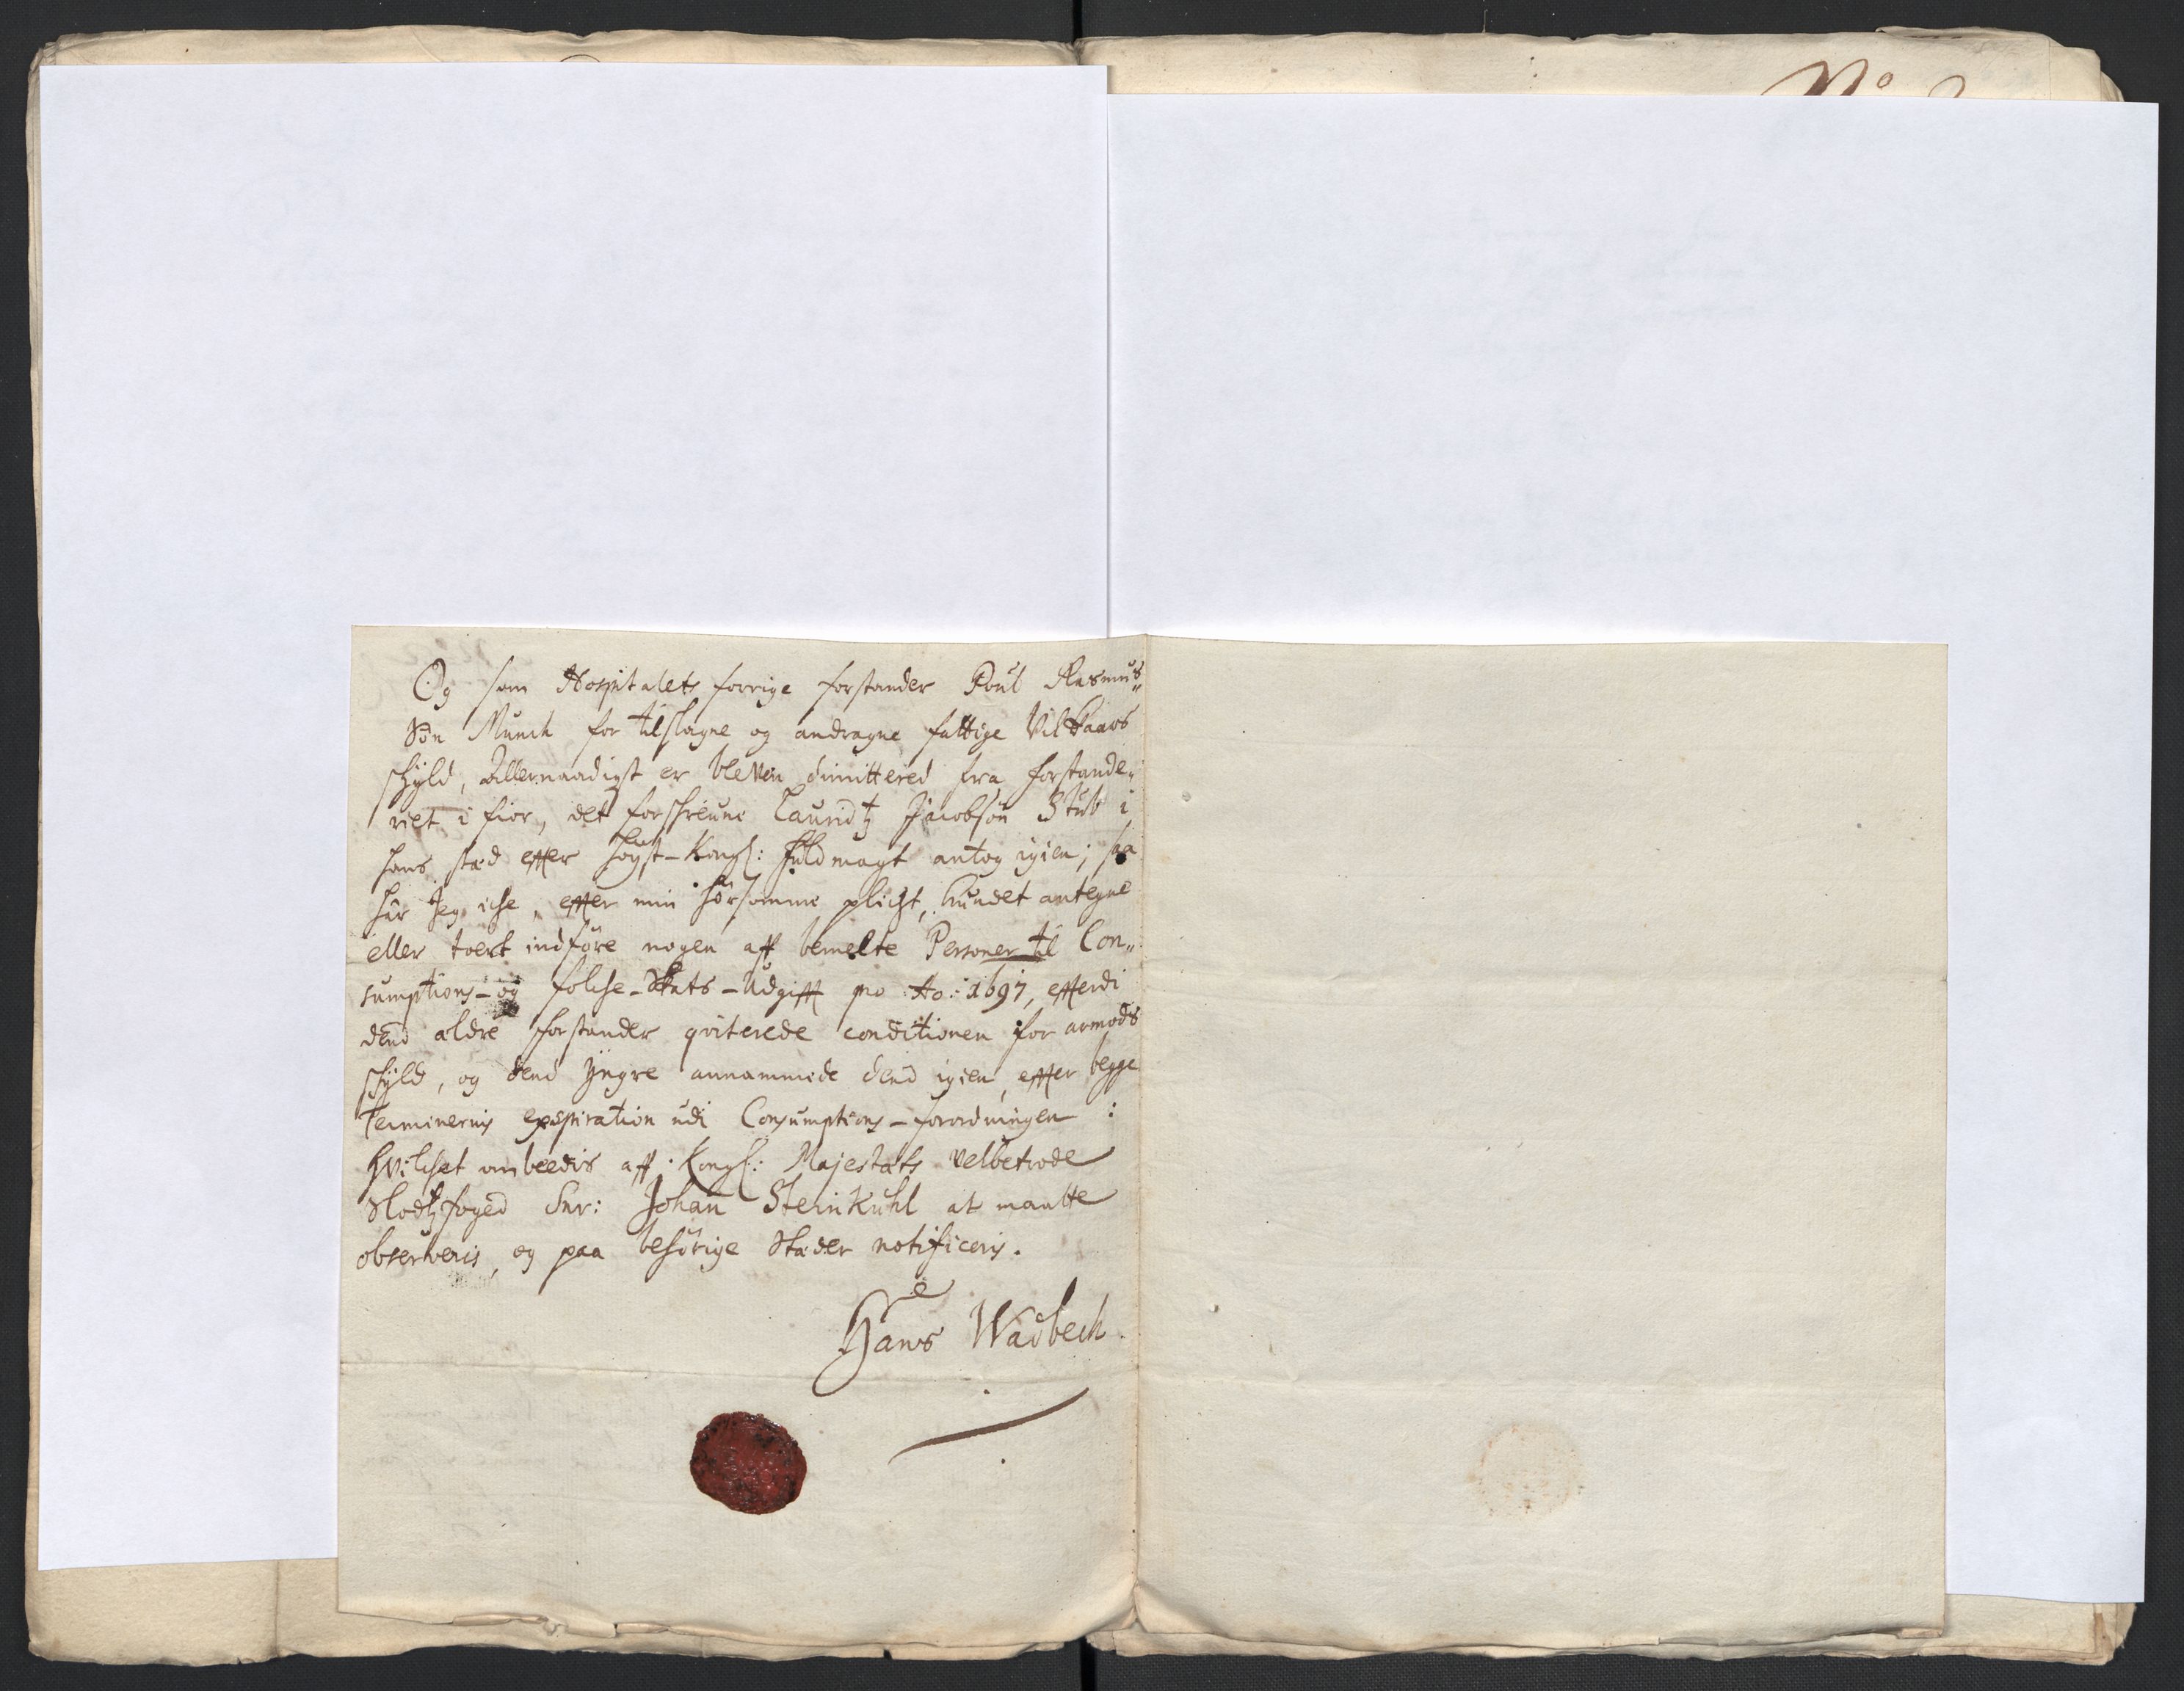 No
Og som Hospitalets forrige forstander Poul Rasmus„
Søn Munch for tilslagne og andragne fattige Vilkaars
skyld, Allernaadigst er bleven dimittered fra forstande„
riet i fior, det forskreune Lauridtz Jacobsøn Stub i
hans sted efter høyst-Kongl: fuldmagt antog igien; saa
har Jeg iche, efter min hørsomme plicht, kundet antegne
eller tvert indføre nogen aff bemelte Personer til Con„
sumptions- og folche-Skats-Udgifft pro Ao: 1697, efterdi
dend ældre forstander qviterede conditionen for armods
skyld, og dend yngre annammede dend igien, efter begge
Terminernis exspiration udi Consumptions-forordningen:
Hvilchet ombeedis aff Kongl: Majestäts velbetrode
Slodtzfoged Snr: Johan Steinkuhl at maatte
observeris, og paa behørige Stæder notificeris.
Hans Wadbech.